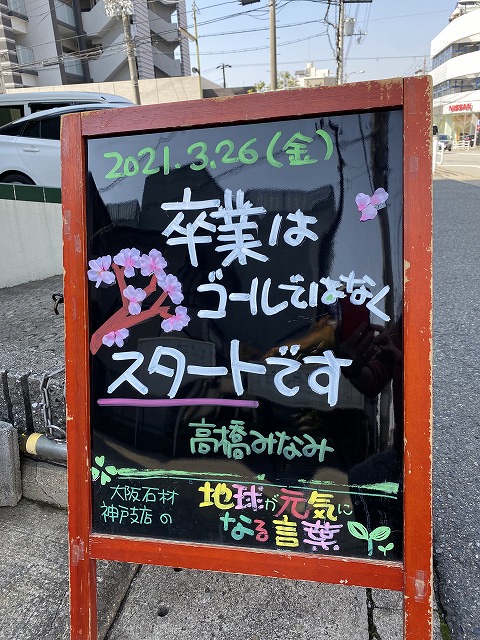 2021.3.26(金)
卒業は
ゴールではなく
スタートです
高橋みなみ
大阪石材
神戸支店の
地球が元気に
なる言葉
NISSAN